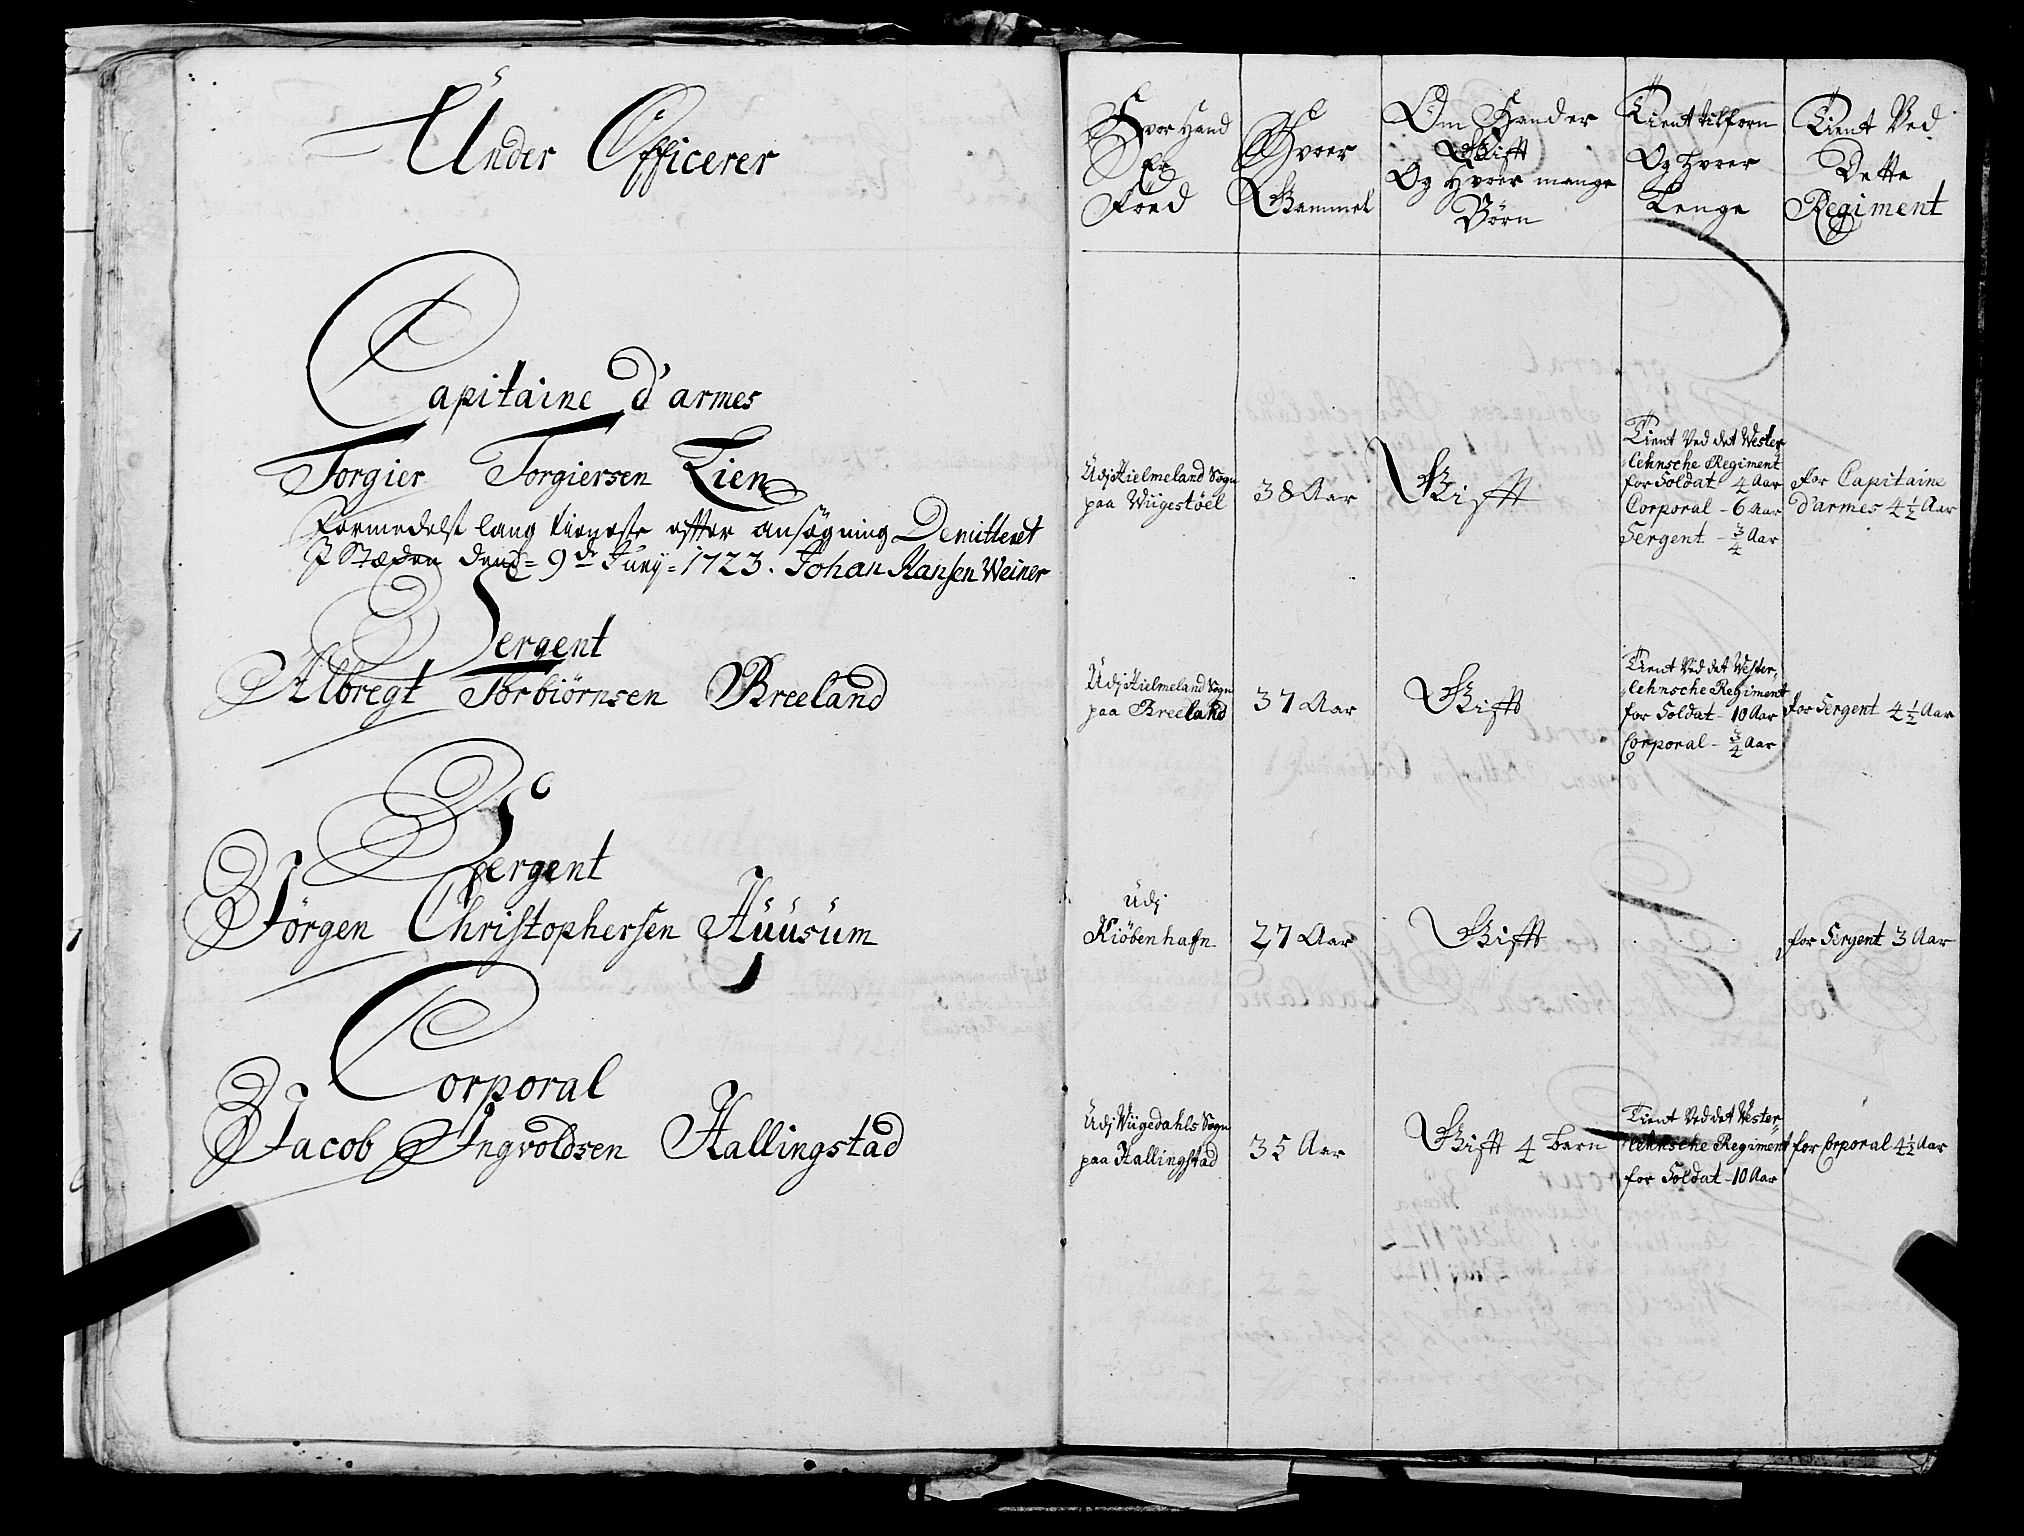 Under Officerer
Capitaine d'armes
Torgier Torgiersen Lien
formedelst lang tieneste efter ansøgning Demitteret
I Stæden dend = 9de Juny = 1723. Johan Hansen Weiner
Sergent
Albregt Torbiörnsen Breeland
Sergent
Jörgen Christophersen Huusum
Corporal
Jacob Ingvoldsen Hallingstad
Hvor Hand
Er
Föed
Hvoer
Gammel
Om Hand er
Gift
Og Hvoer mange
Börn
Tient tilforn
Og hvoer
Lenge
Tient Ved
Dette
Regiment
Udj Hielmeland Sogn
paa Wiigestöel
38 Aar
Gifft
Tient Ved det Wester
lehnsche Regiment
for Soldat 4 Aar
Corporal - 6 Aar
Sergent - 3/4 Aar
for Capitaine
d'armes 4 1/2 Aar
Udj Hielmeland Sogn
paa Breeland
37 Aar
Gifft
Tient Ved det Wester
lehnsche Regiment
for Soldat - 10 Aar
Corporal - 3/4 Aar
for Sergent 4 1/2 Aar
Udj
Kiöbenhafn
27 Aar
Gifft
for Sergent 3 Aar
Udj Wiigedahls Sogn
paa Hallingstad
35 Aar
Gifft 4 barn
Tient Ved det Wester
lehnsche Regiment
for Soldat - 10 Aar
for Corporal 4 1/2 Aar